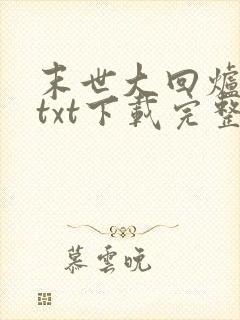 末世大回爐
txt下載完整
慕雲晚